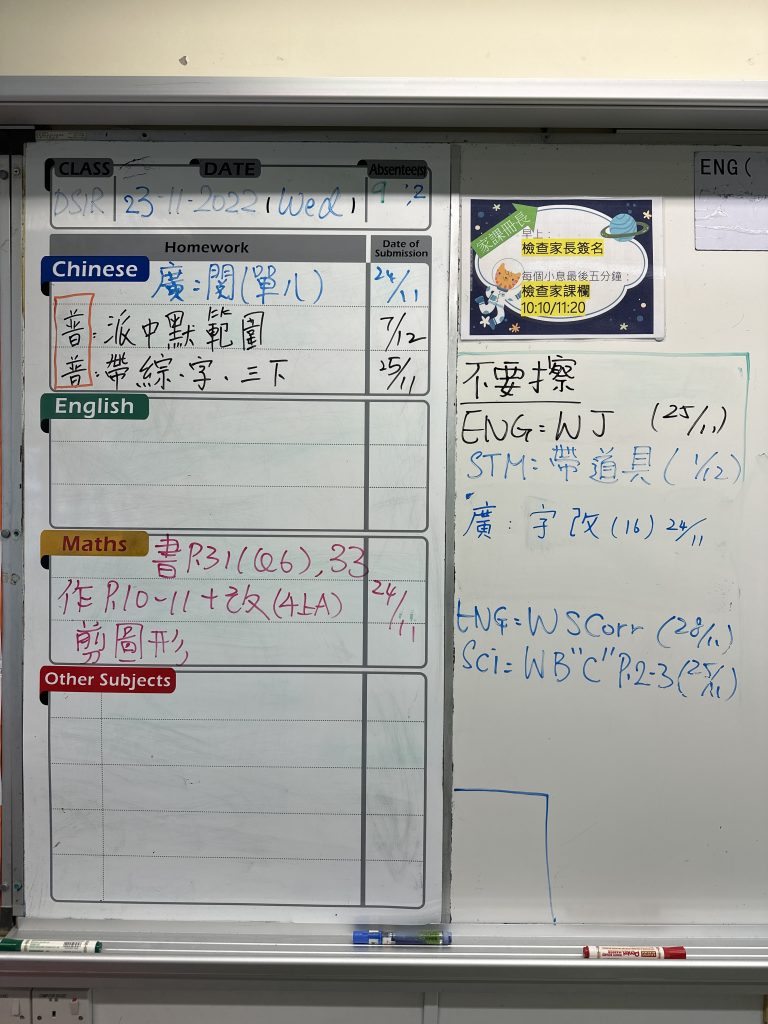 CLASS DATE Absentee(s)
D5IR 23-11-2022 (Wed) 9 , 2
Homework Date of Submission
Chinese 廣：閱(單八) 24/11
普：派中默範圍 7/12
普：帶綜、字、三下 25/11
English
Maths 書P.31(Q6), 33
作P.10-11+改(4上A) 24/11
剪圖形
Other Subjects
ENG (
家課冊長
早上：
檢查家長簽名
每個小息最後五分鐘：
檢查家課欄
10:10/11:20
不要擦
ENG=WJ (25/11)
STM=帶道具(1/12)
廣：字改(16) 24/11
ENG=WSCorr (28/11)
Sci=WB"C"P.2-3(25/11)